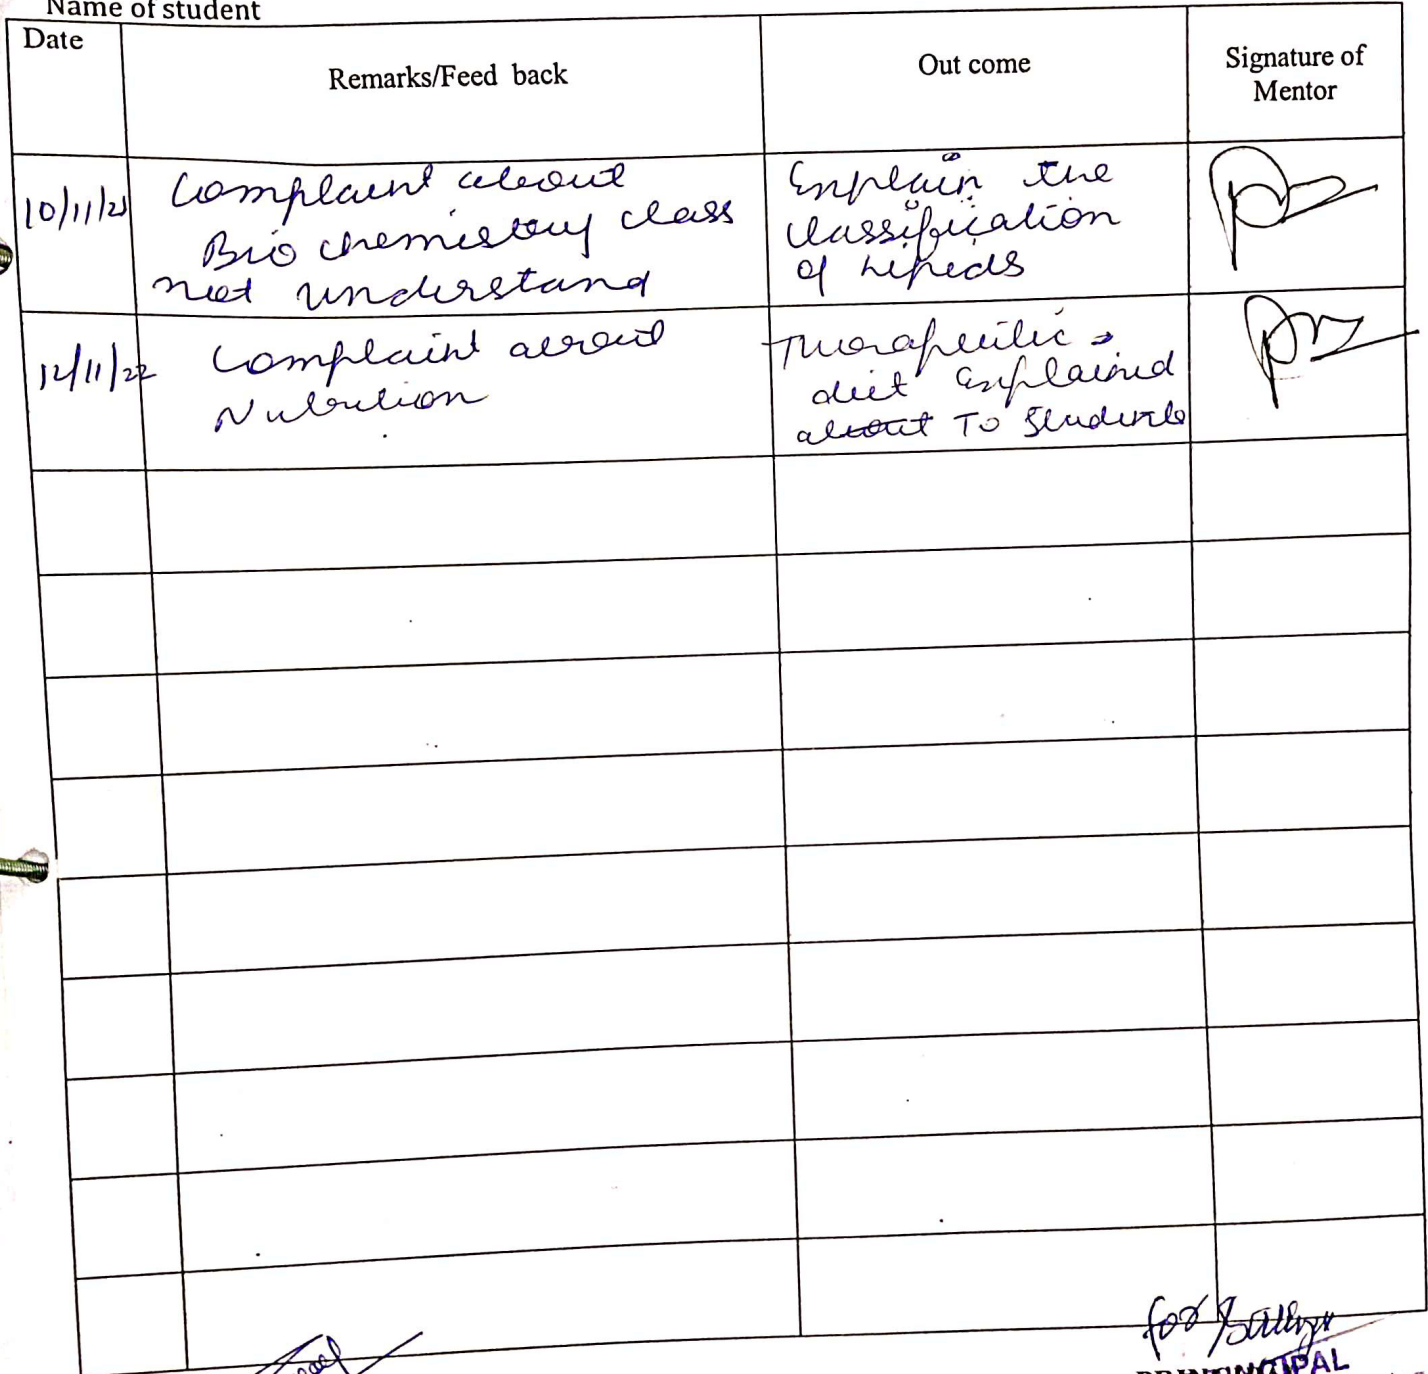 Name of student
Date
Remarks/Feed back
Out come
Signature of
Mentor
10/11/21
Complaint about
Bio chemistry class
not understand
Explain the
classification
of Lipids
12/11/22
Complaint about
Nutrition
Therapeutic
diet Explained
about To Students
for
PRINCIPAL